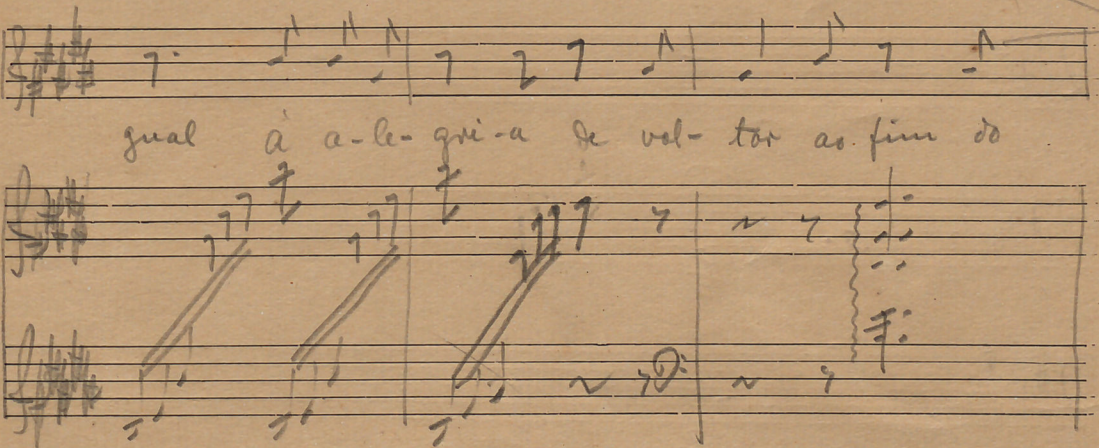 gual à a-le-gri-a de vol-tar ao fim do